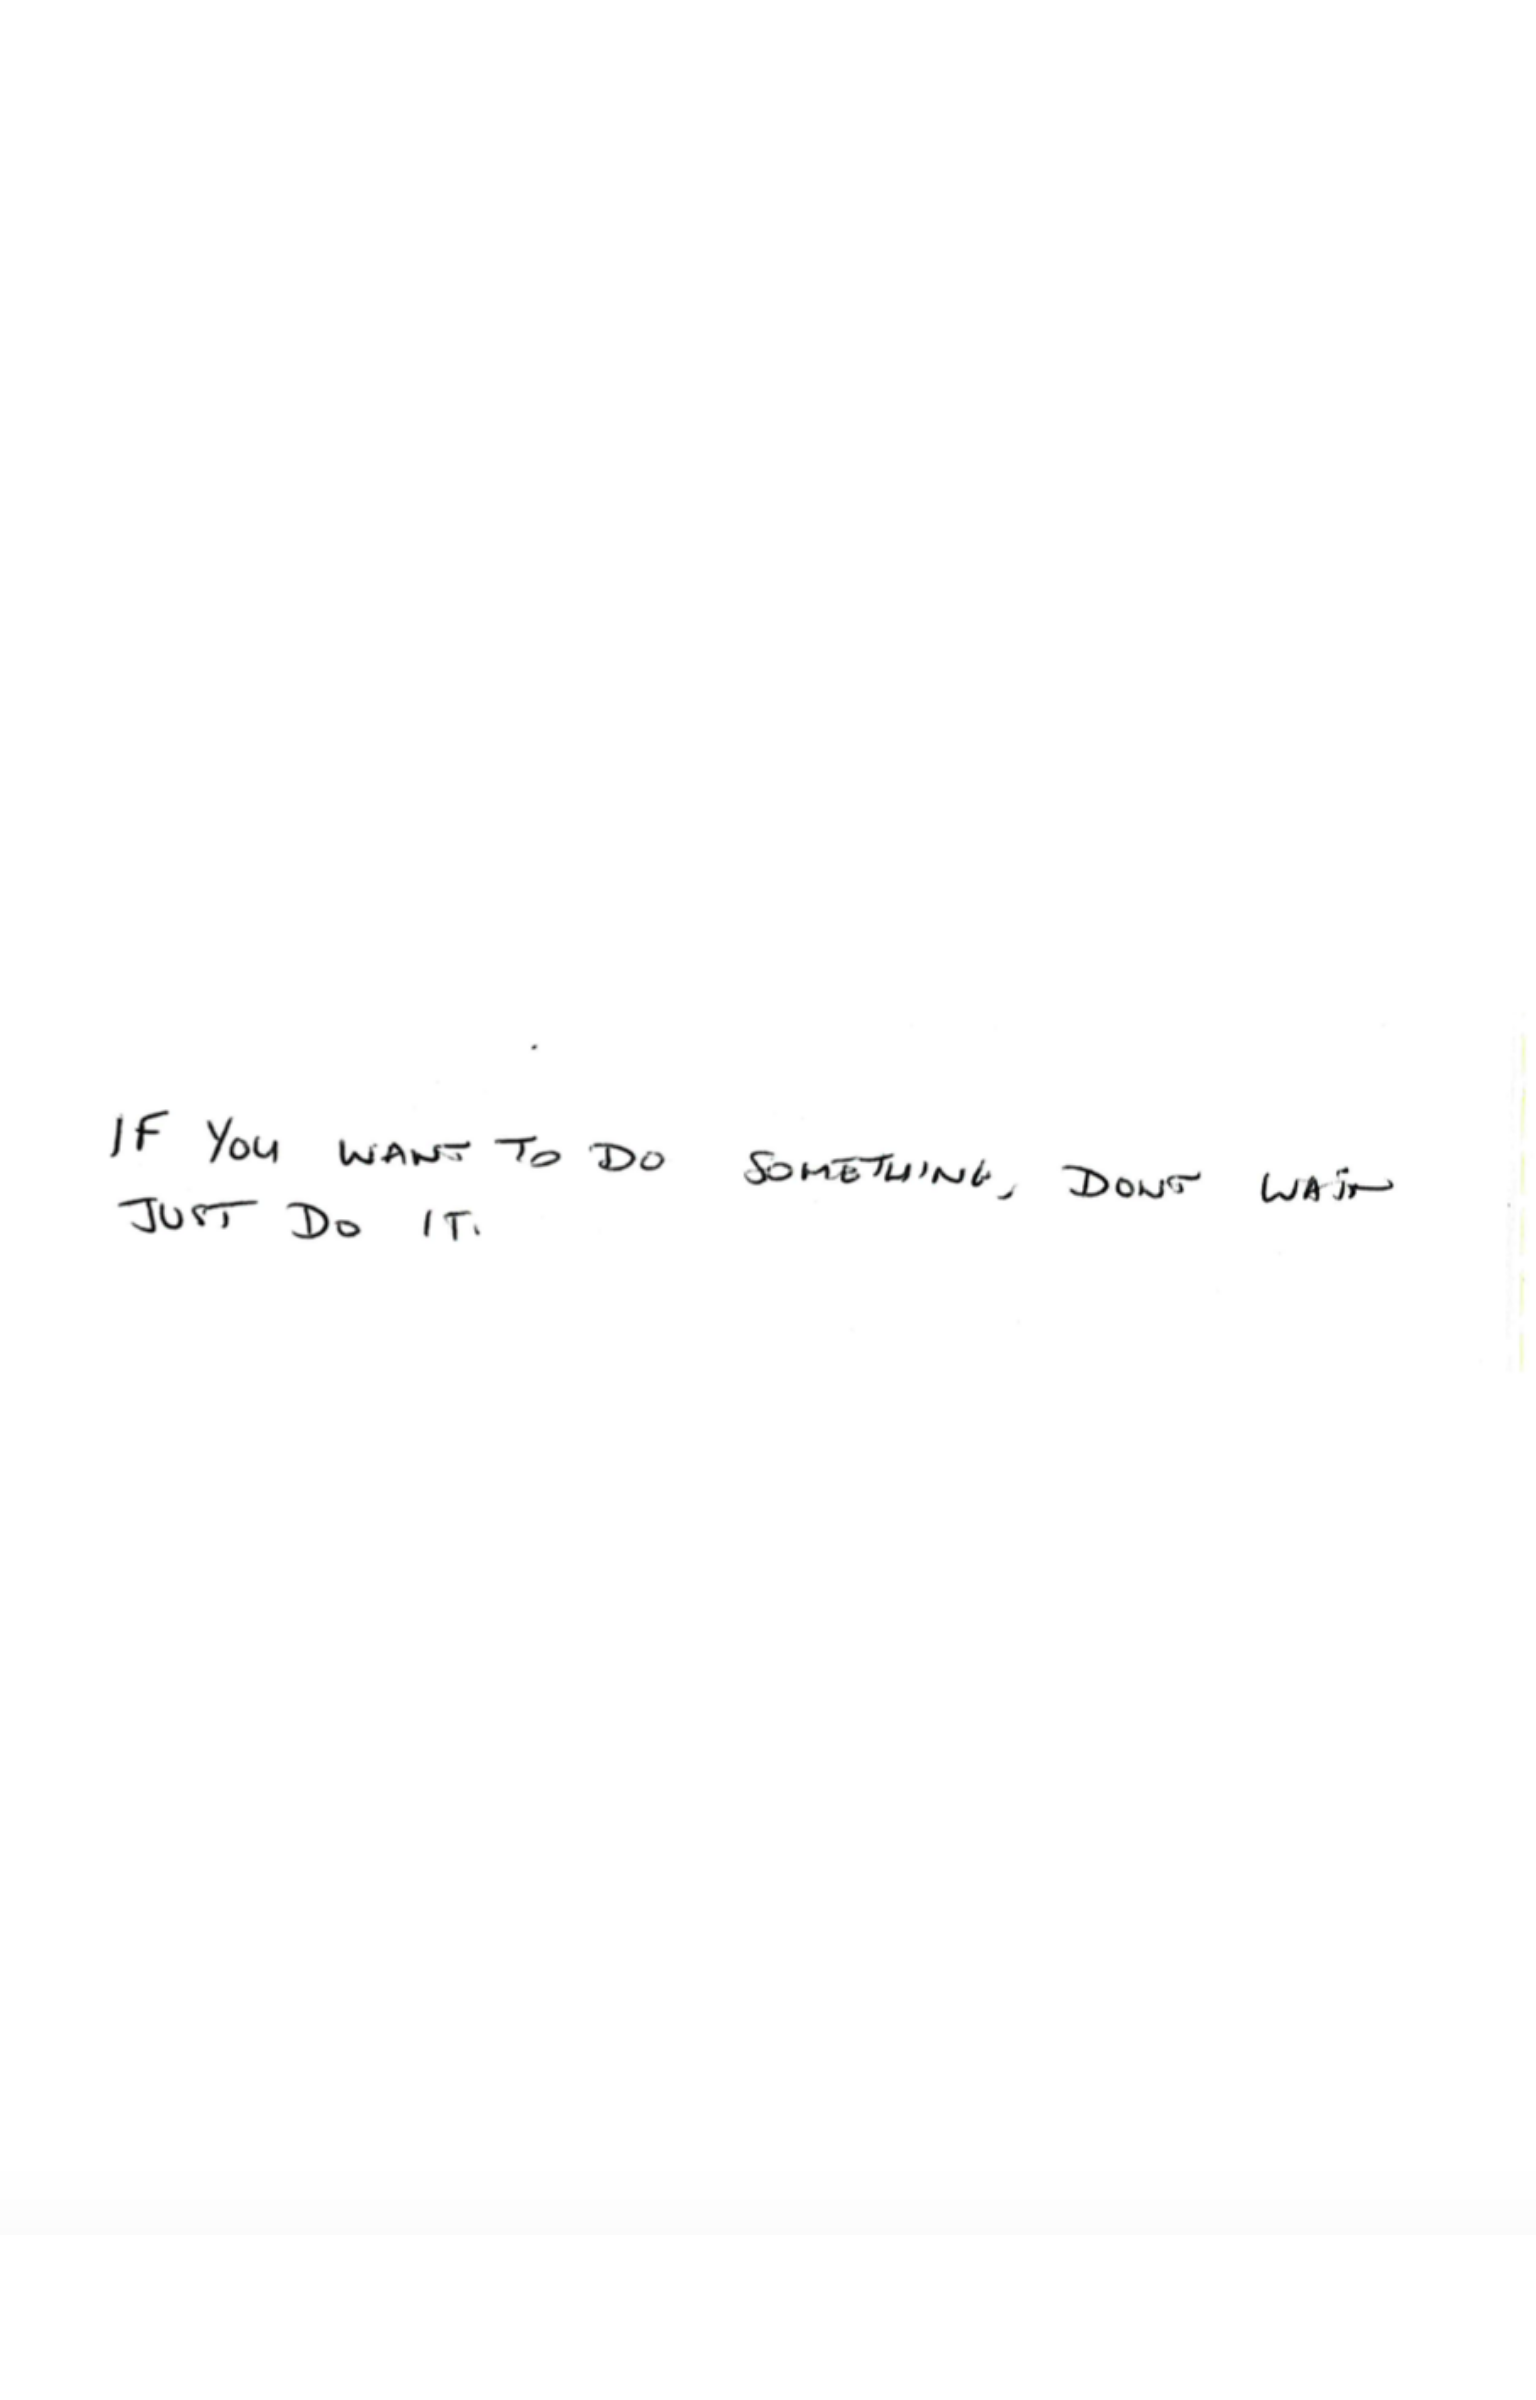 IF YOU WANT TO DO SOMETHING, DONT WAIT
JUST DO IT.